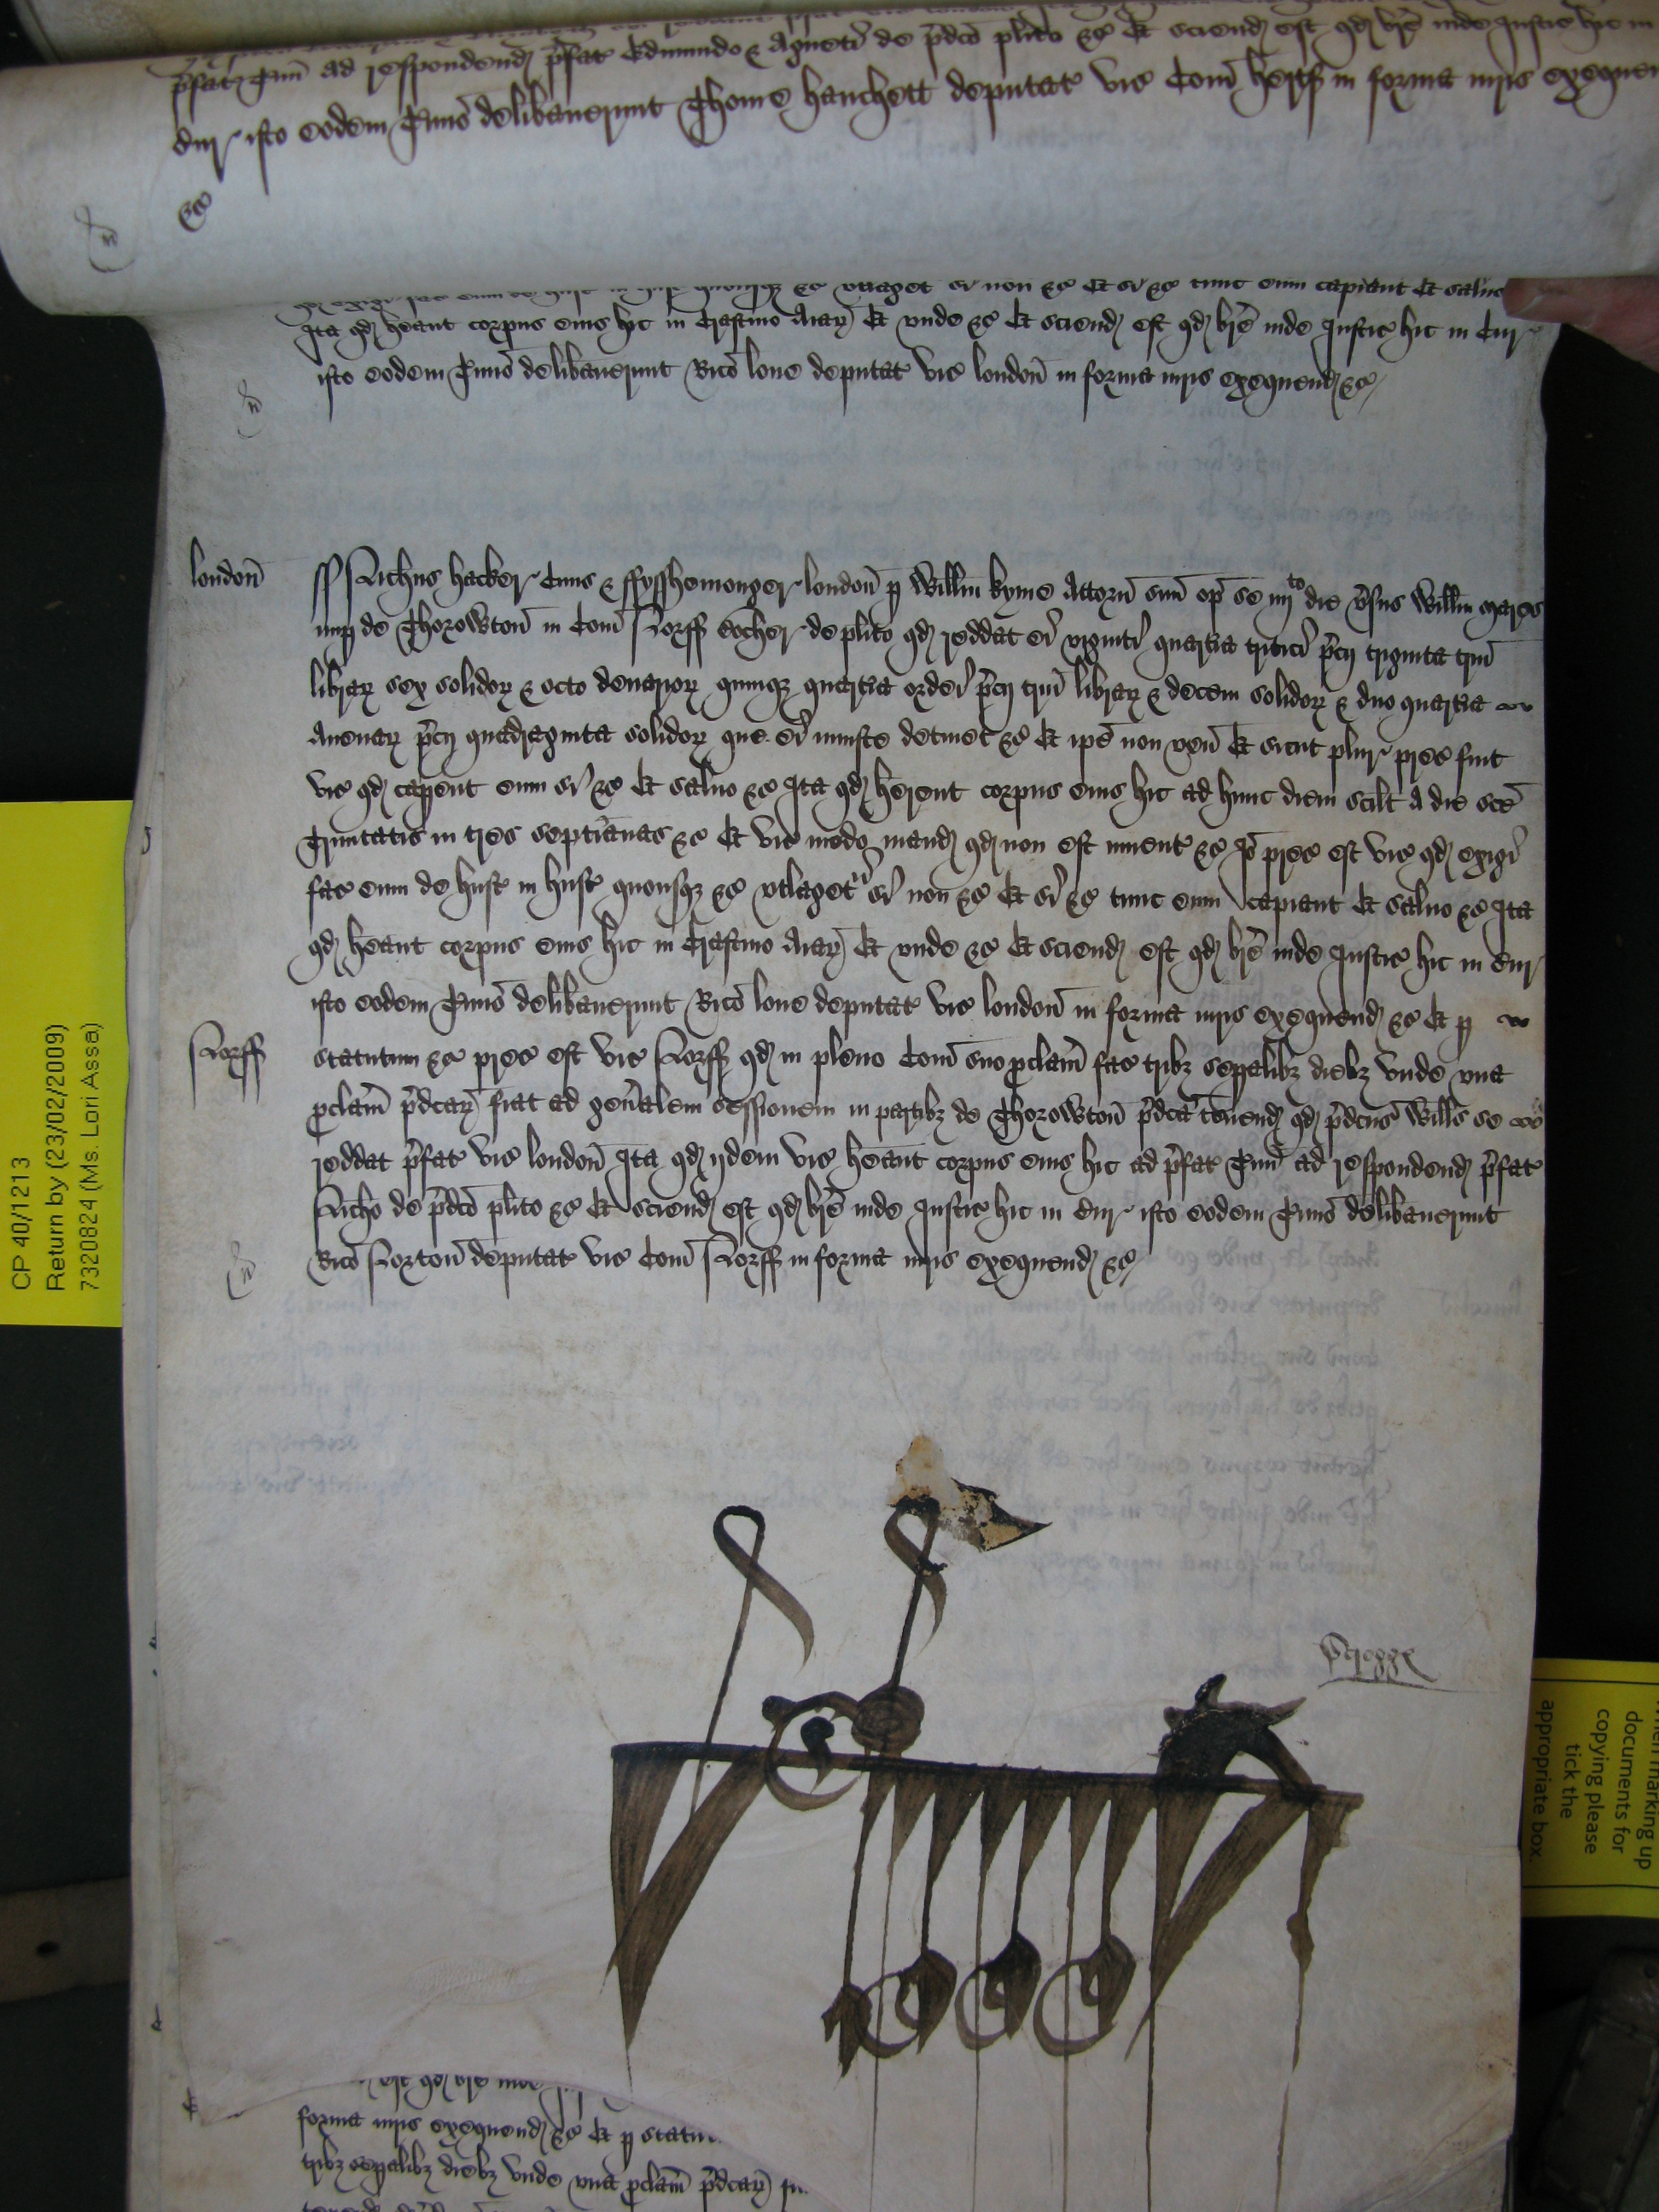 p̄fat̛ t̛mī ad respondend̛ p̄fat̛ Edmundo & Agneti de p̄dc̄o plīto &c̛ Et sciend̛ est qd̛ br̄e inde Justic̛ hic in
Cur̛ isto eodem t̛mīo delibauerunt Thome hanchett deputat̛ vic̛ Com̄ hertf̛ in forma iuris exequen
&c̛
vtlaget̛ si non &c̛ Et si &c̛ tunc eum capiant Et saluo
Ita qd̛ hēant corpus eius hic in Crastino Aiar̛ Et vnde &c̛ Et sciend̛ est qd̛ br̄e inde Justic̛ hic in Cur̛
isto eodem t̛mīo delibauerunt Ric̄o lone deputat̛ vic̛ london̄ in forma iuris exequend̛ &c̛
london̄
ss Nich̄us hacker Ciuis & ffysshemonger london̄ p̱ Willm̄ kyme Attorn̄ suū op̄ se iiijto die v̄sus Willm̄
nup̱ de Thorowton̄ in Com̄ Norff̛ de plīto qd̛ reddat ei viginti quart̛ia tritici p̄cij triginta triū
librar̛ sex solidor̛ & octo denarior̛ quinqz quart̛ia ordei p̄cij triū librar̛ & decem solidor̛ & duo quart̛ia
Auenar̛ p̄cij quadraginta solidor̛ que ei iniuste detinet &c̛ Et ip̄e non ven̄ Et sicut plur̛ prec̛ fuit
vic̛ qd̛ capent eum si &c̛ Et saluo &c̛ Ita qd̛ hērent corpus eius hic ad hunc diem scilt̛ A die sc̄e
Trinitatis in tres septīanas &c̛ Et vic̛ modo mand̛ qd̛ non est inuent̛ &c̛ Iō prec̛ est vic̛ qd̛ exigi
fac̛ eum de hust̛ in hust̛ quousqz &c̛ vtlaget̛ si non &c̛ Et si &c̛ tunc eum capiant Et saluo &c̛ Ita
qd̛ hēant corpus eius hic in Crastino Aiar̛ Et vnde &c̛ Et sciend̛ est qd̛ br̄e inde Justic̛ hic in Cur̛
isto eodem t̛mīo delibauerunt Ric̄o lone deputat̛ vic̛ london̄ in forma iuris exequend̛ &c̛ Et p̱
Norff̛
statutum &c̛ prec̛ est vic̛ Norff̛ qd̛ in pleno Com̄ suo p̱clam̄ fac̛ tribz sep̱alibz diebz vnde vna
p̱clam̄ p̄dcar̛ fiat ad gen̄alem sessionem in partibz de Thorowton̄ p̄dca tenend̛ qd̛ p̄dcus Wills̄ se
reddat p̄fat̛ vic̛ london̄ Ita qd̛ ijdem vic̛ hēant corpus eius hic ad p̄fat̛ t̛mī ad respondend̛ p̄fat̛
Nich̄o de p̄dc̄o plīto &c̛ Et sciend̛ est qd̛ br̄e inde Justic̛ hic in Cur̛ isto eodem t̛mīo delibauerunt
Ric̄o Norton̄ deputat̛ vic̛ Com̄ Norff̛ in forma iuris exequend̛ &c̛
est qd̛ br̄e inde
forma iuris exequend̛ &c̛ Et p̱ statu
tribz sep̱alibz diebz vnde vna p̱clam̄ p̄dcar̛
CP 40/1213
Return by (23/02/2009)
7320824 (Ms. Lori Assa)
when marking up
documents for
copying please
tick the
appropriate box.